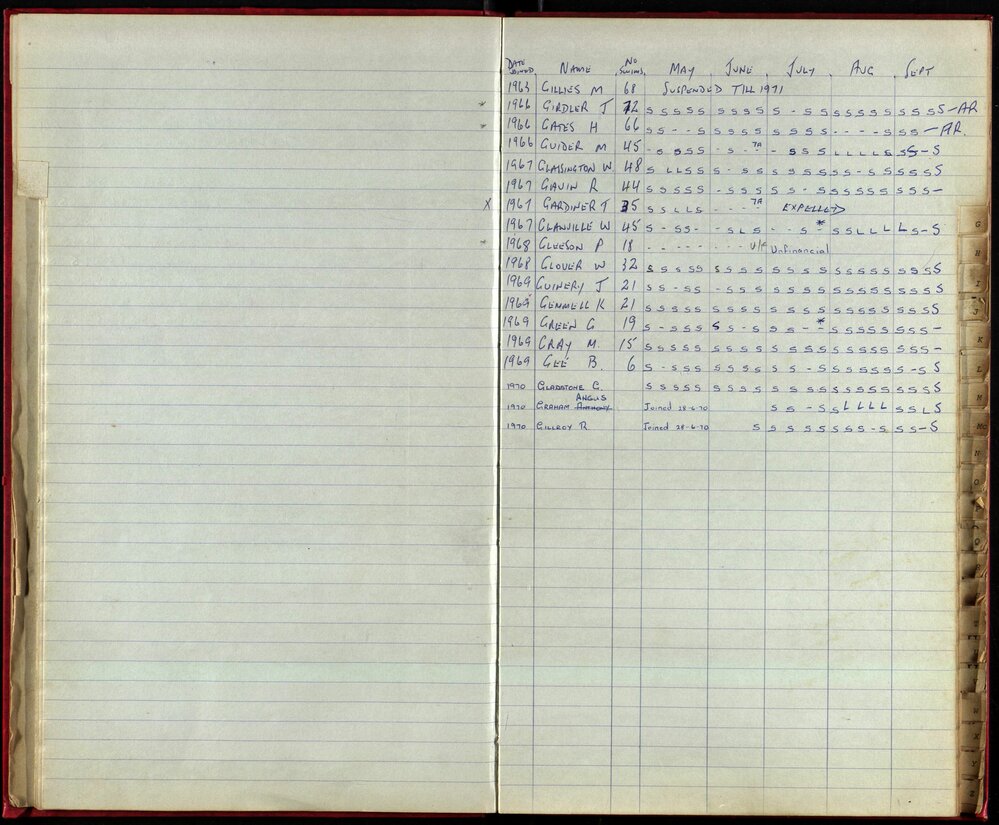 DATE JOINED NAME NO SWIMS MAY JUNE JULY AUG SEPT
1963 GILLIES M 68 SUSPENDED TILL 1971
1966 GIRDLER J 72 S S S S S S S S S S S - S S S S S S S S S S S - AR
1966 GATES H 66 S S - - S S S S S S S S S - - - - S S S - AR.
1966 GUIDER M 45 - S S S S - S - TA - S S S L L L L S S S - S
1967 GLASSINGTON W 48 S L L S S S - S S S S S S S S - S S S S S S
1967 GAVIN R 44 S S S S S - S S S S S - S S S S S S S S S -
X 1967 GARDINER T 35 S S L L S - - - TA EXPELLED
1967 GLANVILLE W 45 S - S S - - S L S - - S * S S L L L L S - S
1968 GLEESON P 18 - - - - - - - - U/F Unfinancial
1968 GLOVER W 32 S S S S S S S S S S S S S S S S S S S S S S
1969 GUINERY J 21 S S - S S - S S S S S S S S S S S S S S S S
1969 GEMMELL K 21 S S S S S S S S S S S S S S S S S S S S S S
1969 GREEN G 19 S - S S S S S - S S S - - * S S S S S S S -
1969 GRAY M 15 S S S S S S S S S S S S S S S S S S S S S -
1969 GEE B. 6 S - S S S S S S S S S - S S S S S S S - S S
1970 GLADSTONE G. S S S S S S S S S S S S S S S S S S S S S S
ANGUS
1970 GRAHAM ANTHONY Joined 28-6-70 S S - S S L L L L S S L S
1970 GILLROY R. Joined 28-6-70 S S S S S S S S S - S S S - S
G
H
I
J
K
L
M
Mc
N
O
Q
W
X
Y
Z